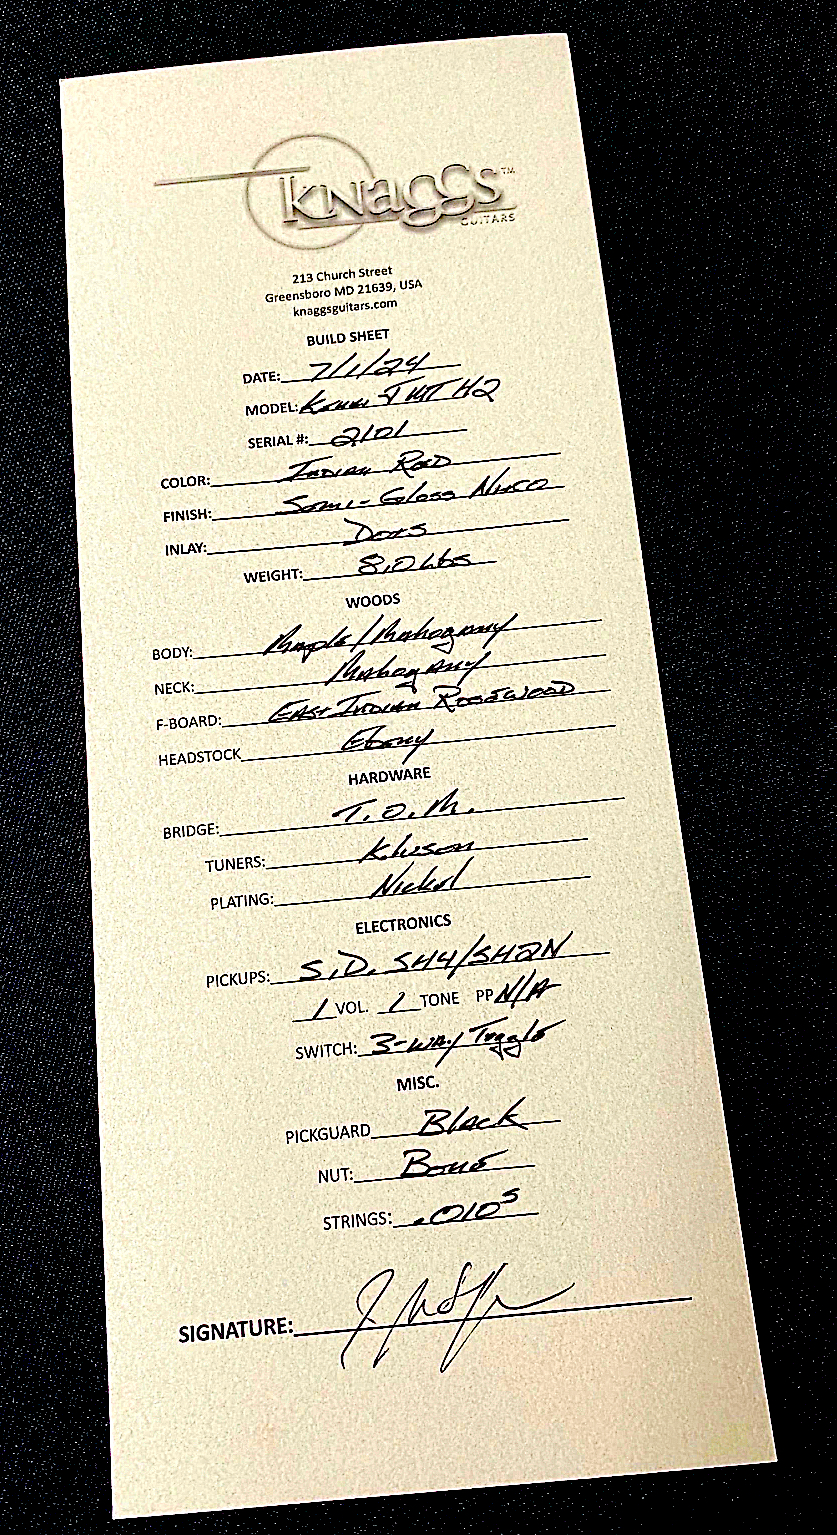 KNaGGS™
GUITARS
213 Church Street
Greensboro MD 21639, USA
knaggsguitars.com
BUILD SHEET
DATE: 7/1/24
MODEL: T2
SERIAL #: 2101
COLOR: Indian Red
FINISH: Semi-Gloss Nitro
INLAY: Dots
WEIGHT: 8.0 Lbs
WOODS
BODY: Maple/Mahogany
NECK: Mahogany
F-BOARD: East Indian Rosewood
HEADSTOCK Ebony
HARDWARE
BRIDGE: T.O.M.
TUNERS: Kluson
PLATING: Nickel
ELECTRONICS
PICKUPS: S.D. SH4/SH2N
1 VOL. 1 TONE PP N/A
SWITCH: 3-way Toggle
MISC.
PICKGUARD Black
NUT: Bone
STRINGS: .010s
SIGNATURE: